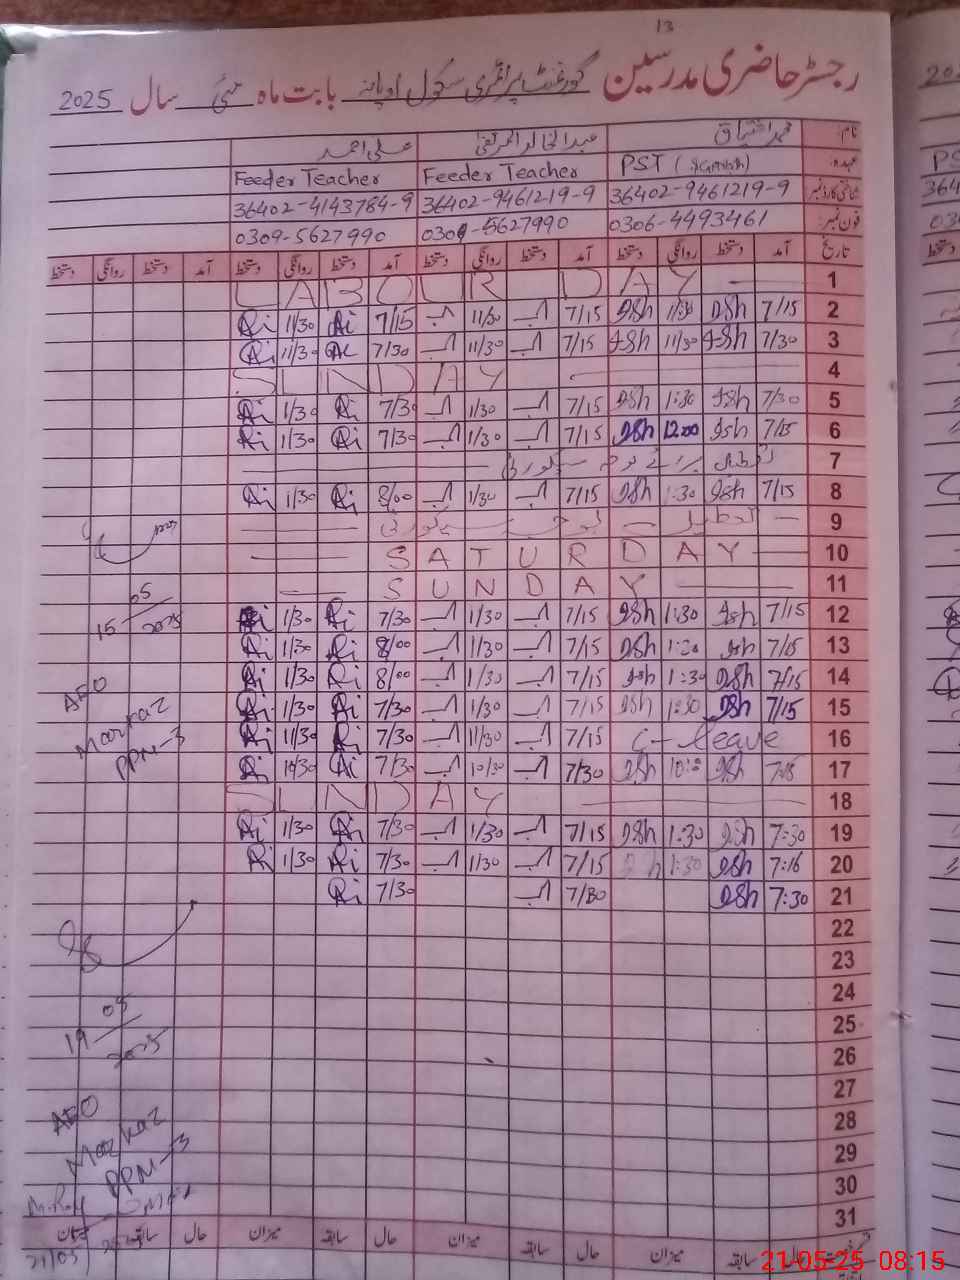 13
رجسٹر حاضری مدرسین گورنمنٹ پرائمری سکول اوپانہ بابت ماہ مئی سال 2025
نام: محمد اشتیاق عبدالخالق علی احمد
عہدہ: PST Feeder Teacher Feeder Teacher
شناختی کارڈ نمبر 36402-9461219-9 36402-9461219-9 36402-4143784-9
فون نمبر: 0306-4493461 0309-5627990 0309-5627990
تاریخ آمد دستخط روانگی دستخط آمد دستخط روانگی دستخط آمد دستخط روانگی دستخط آمد دستخط روانگی دستخط
1 LABOUR DAY
2 7/15 ISh 11/30 ISh 7/15 11/30 7/15 Ai 11/30 Ai
3 7/30 ISh 11/30 ISh 7/15 11/30 7/30 11/30 Ai
4 SUNDAY
5 7/30 ISh 1:30 ISh 7/15 1/30 7/30 Ai 1/30 Ai
6 7/15 ISh 12:00 ISh 7/15 1/30 7/30 Ai 1/30 Ai
7 تعطیل سیکورٹی
8 7/15 ISh 1:30 ISh 7/15 1/30 8/00 Ai 1/30 Ai
9 تعطیل بوجہ سیکورٹی
10 SATURDAY
11 SUNDAY
12 7/15 ISh 1:30 ISh 7/15 1/30 7/30 Ai 1/30 Ai
13 7/15 ISh 1:30 ISh 7/15 1/30 8/00 Ai 1/30 Ai
14 7/15 ISh 1:30 ISh 7/15 1/30 8/00 Ai 1/30 Ai
15 7/15 ISh 1:30 ISh 7/15 1/30 7/30 Ai 1/30 Ai
16 C-leave 7/15 11/30 7/30 Ai 11/30 Ai
17 7:15 ISh ISh 7/30 10/30 7/30 Ai 10/30 Ai
18 SUNDAY
19 7:30 ISh 1:30 ISh 7/15 1/30 7/30 Ai 1/30 Ai
20 7:16 ISh 1:30 7/15 1/30 7/30 Ai 1/30 Ai
21 7:30 ISh 7/30 7/30 Ai
22
23
24
25
26
27
28
29
30
31
15/05/2025
AEO
Markaz
PPM-3
19/05/2025
AEO
Markaz
PPM-3
21/05
حال سابقہ میزان حال سابقہ میزان حال سابقہ میزان حال سابقہ میزان
21-05-25 08:15